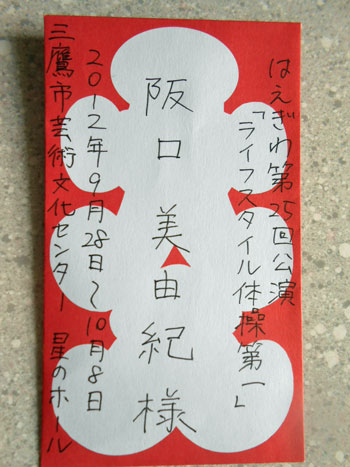 はえぎわ第25回公演
「ライフスタイル体操第一」
阪口 美由紀様
2012年9月28日〜10月8日
三鷹市芸術文化センター 星のホール